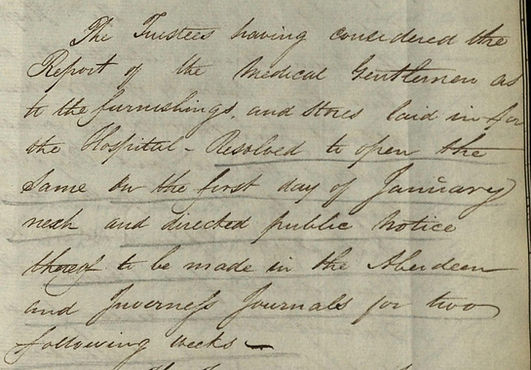 The Trustees having considered the
Report of the Medical Gentlemen as
to the furnishings, and stores laid in for
the Hospital - Resolved to open the
same on the first day of January
next and directed public notice
thereof to be made in the Aberdeen
and Inverness Journals for two
following weeks -